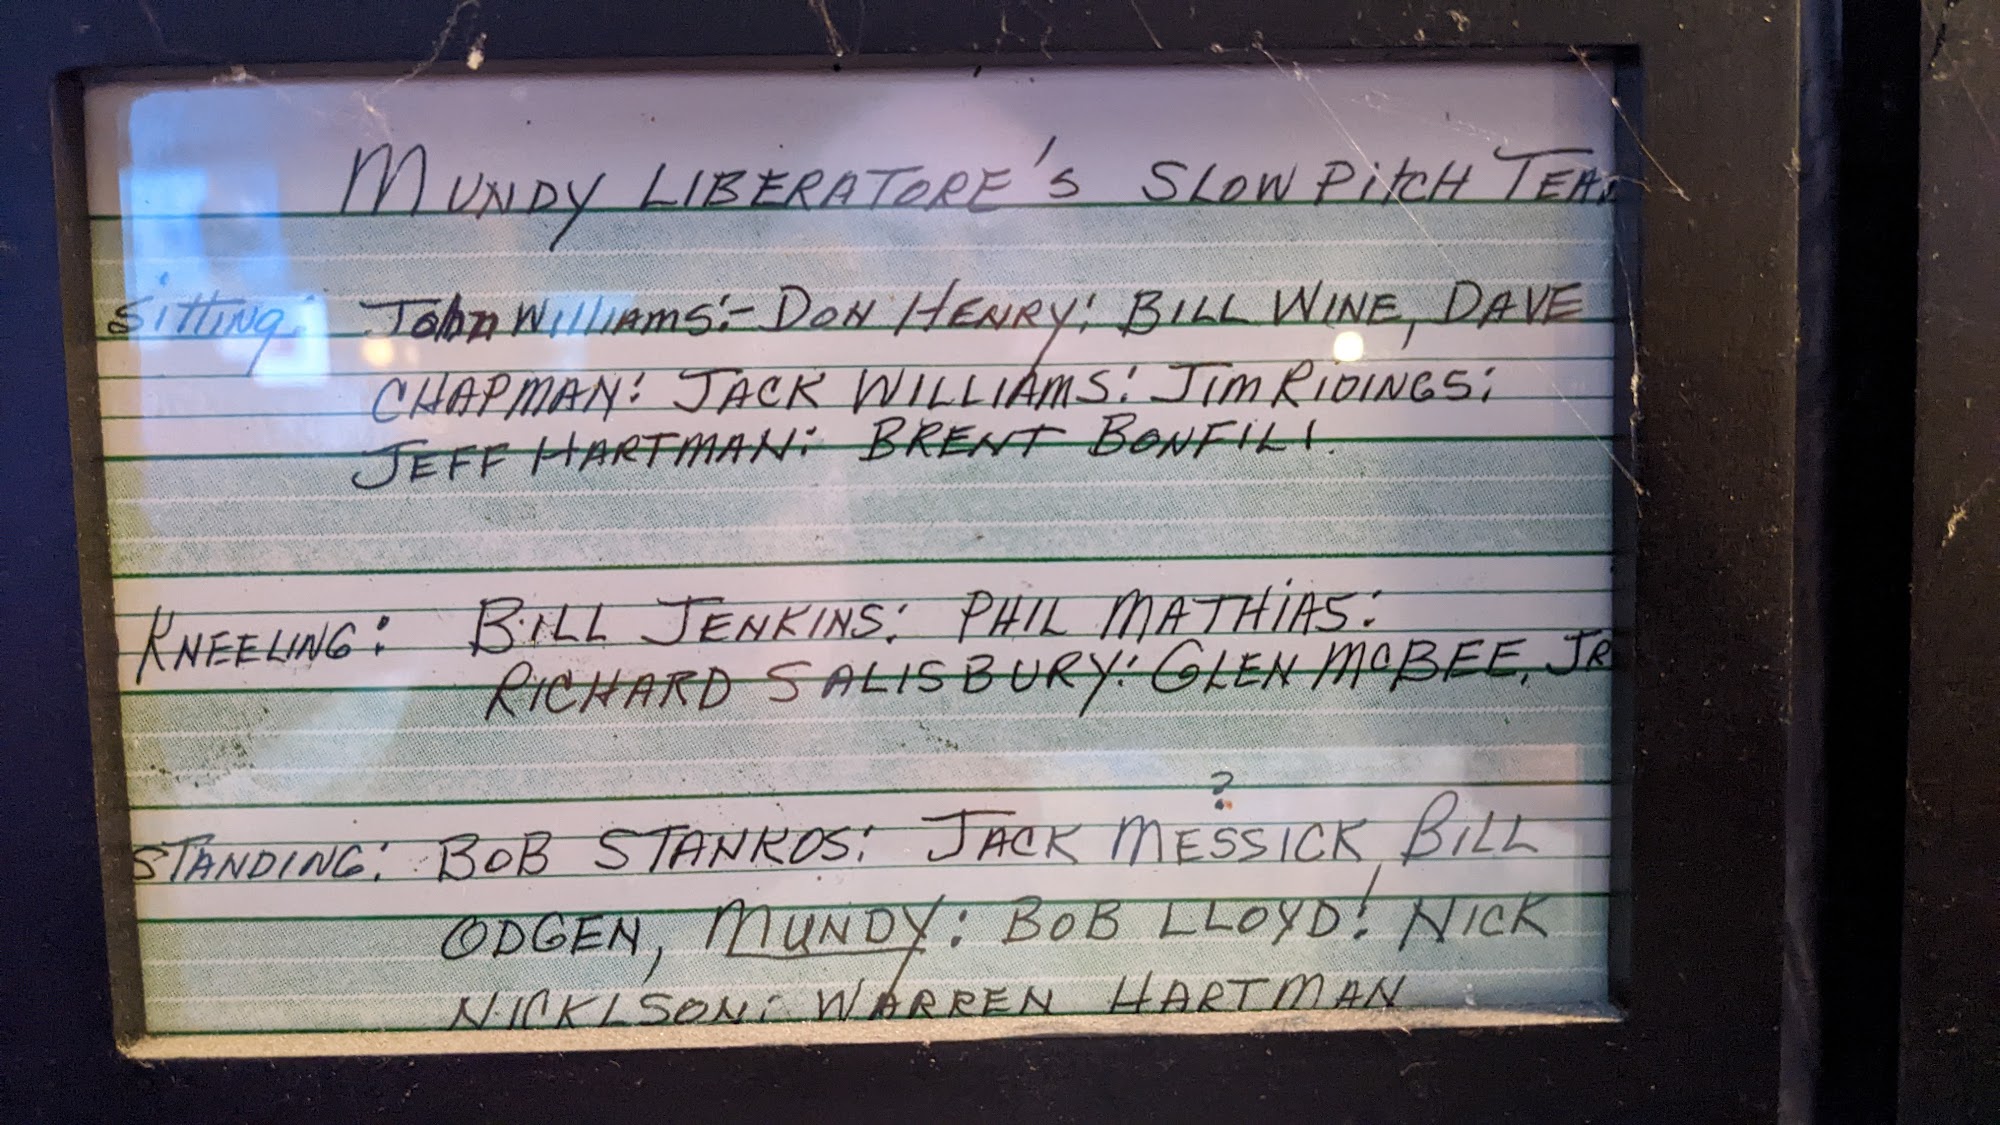 MUNDY LIBERATORE'S SLOW PITCH TEAM
Sitting: John Williams:- DON HENRY: BILL WINE, DAVE
CHAPMAN: JACK WILLIAMS: JIM RIDINGS:
JEFF HARTMAN: BRENT BONFILI.
KNEELING: BILL JENKINS: PHIL MATHIAS:
RICHARD SALISBURY: GLEN MCBEE, JR
?
STANDING: BOB STANKOS: JACK MESSICK, BILL
ODGEN, MUNDY: BOB LLOYD! NICK
NICKLSON: WARREN HARTMAN